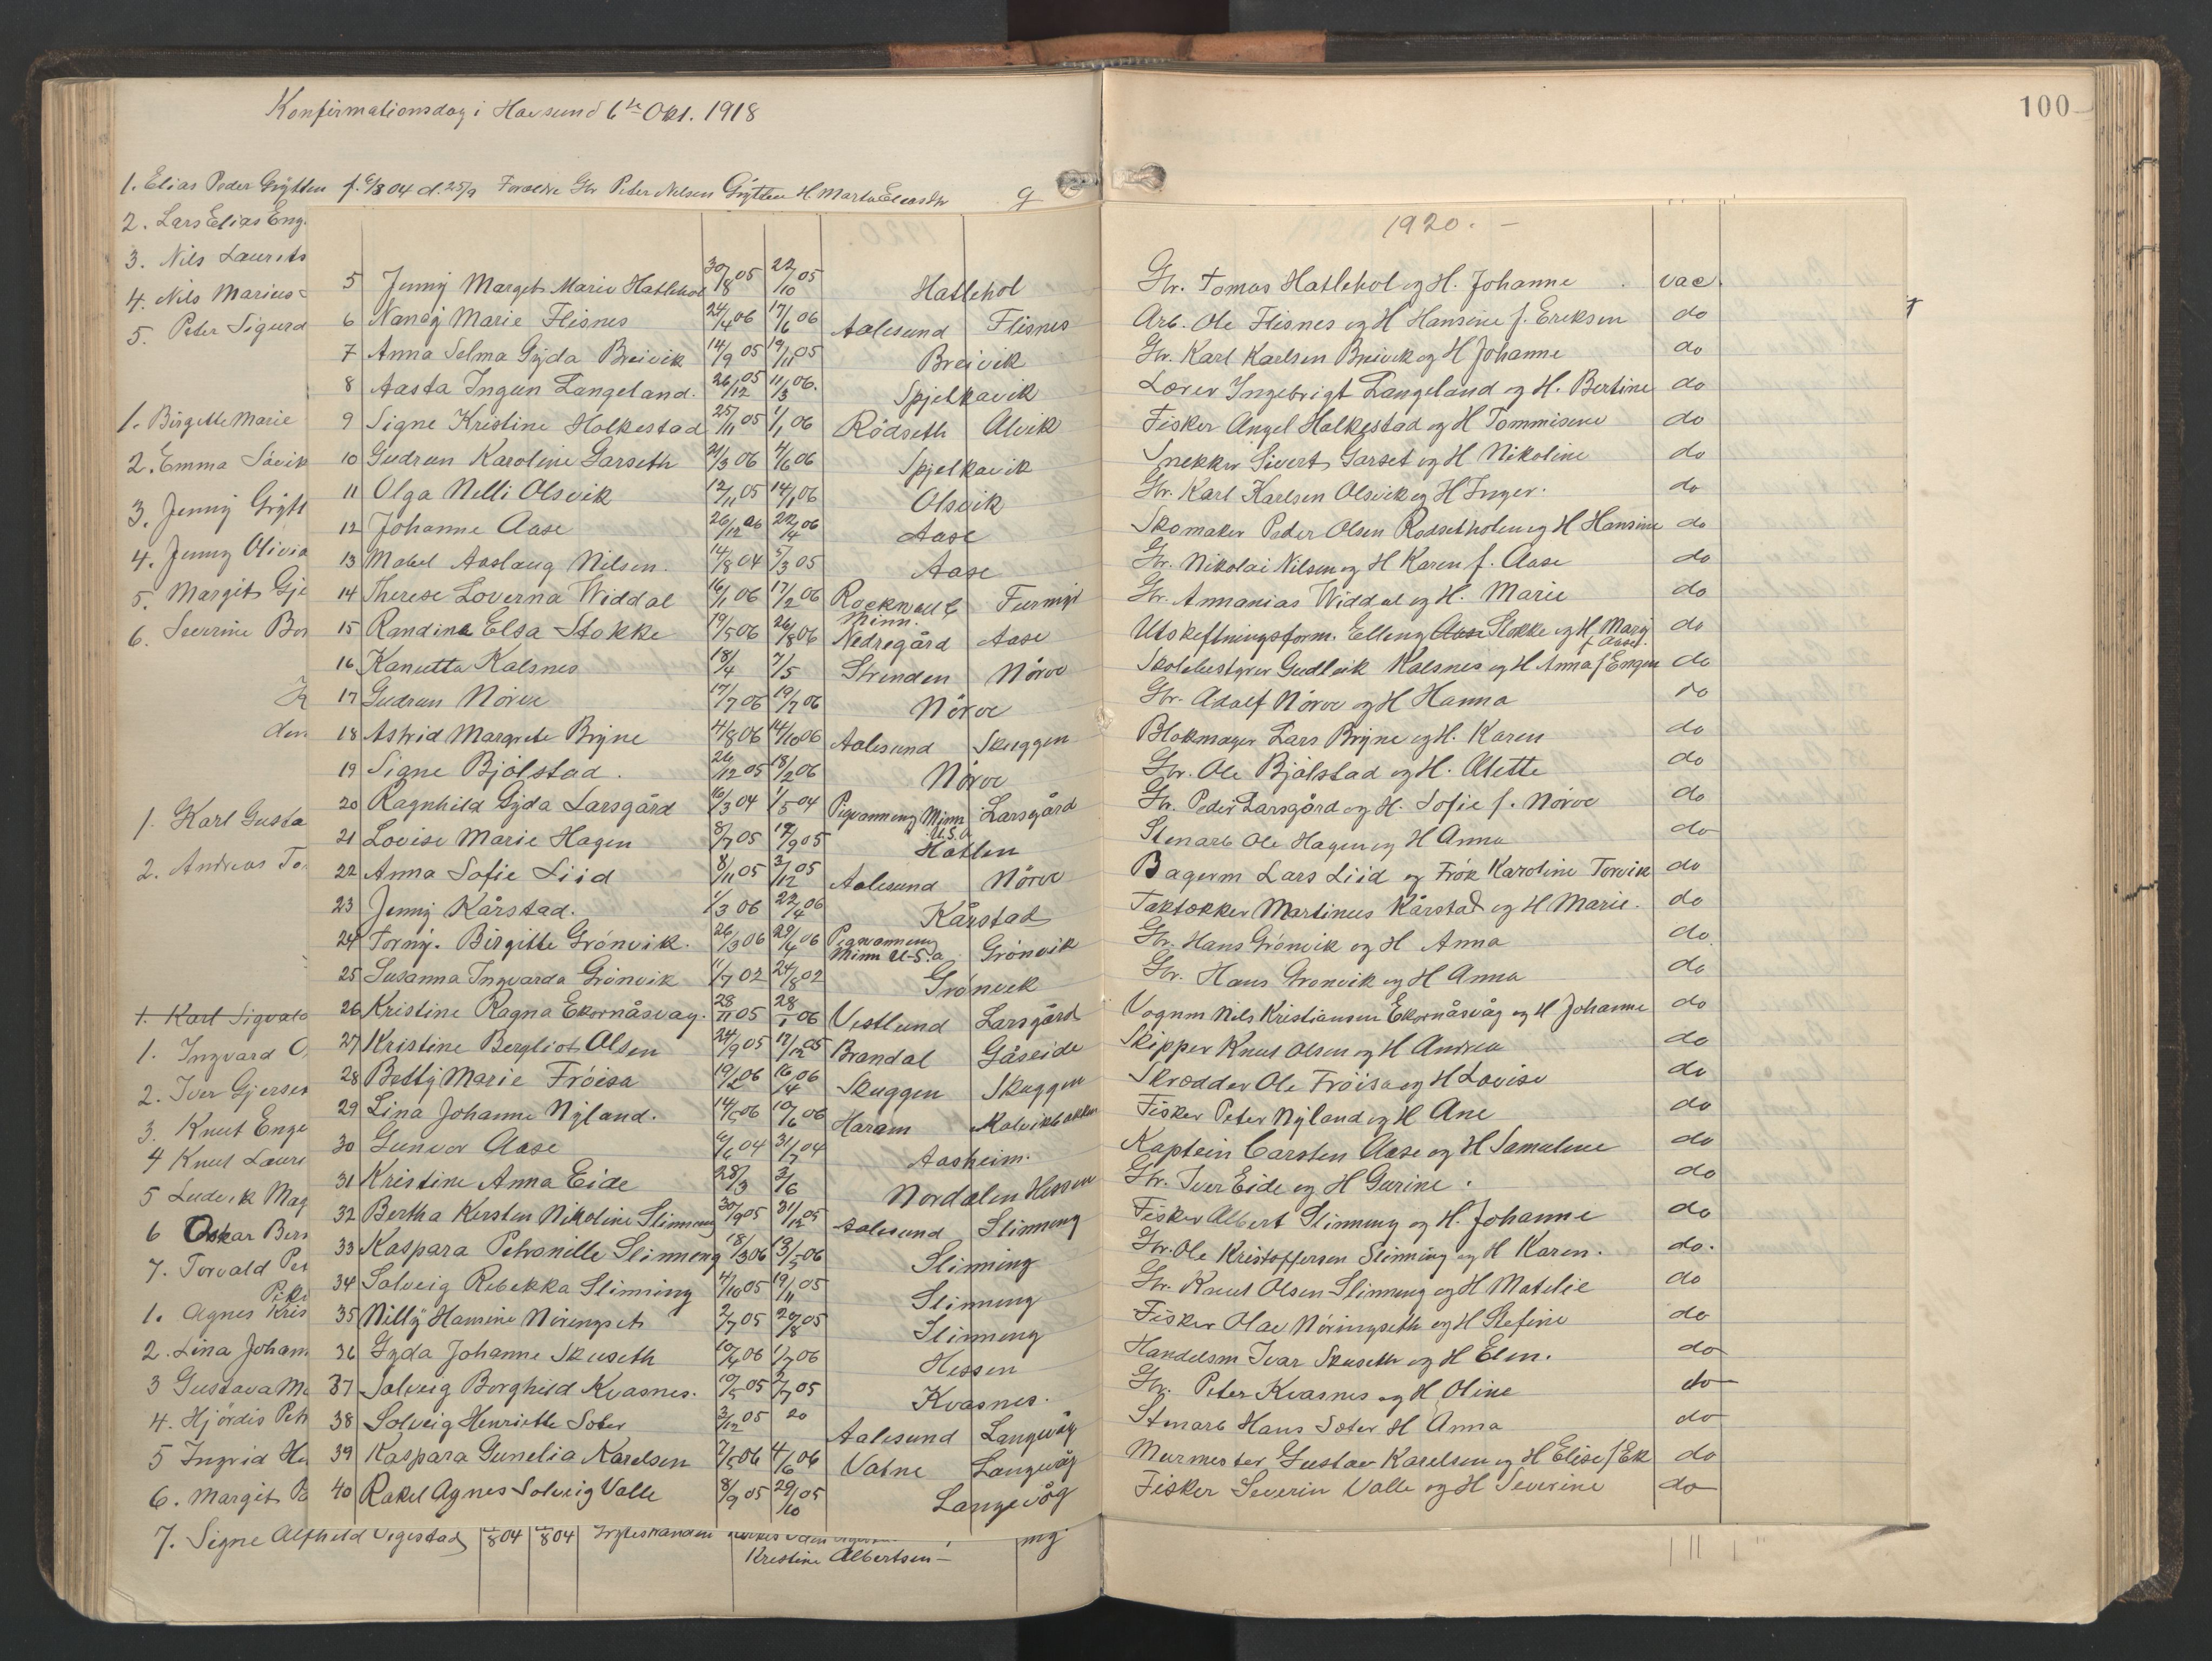 Konfirmationsdag i Havsund 6te Okt. 1918
100
1. Elias Peder Grytten f. 6/3 04 d. 25/9 Foreldre Gbr Peter Nelsen Grytten H. Marta Eliasdtr g
2. Lars Elias Eng.
3. Nils Laurits
4. Nils Marius
5. Peter Sigurd
1. Birgitte Marie
2. Emma Søvik
3. Jenny Grytt
4. Jenny Olivia
5. Margit Gje
6. Severine Bor
den
1. Karl Gusta
2. Andreas To
1. Karl Sigvald
1. Ingvard O
2. Iver Gjersen
3. Knut Enge
4 Knut Lauri
5 Ludvik Mag
6 Oskar Bern
7. Torvald Pet
Pike
1. Agnes Kris
2. Lina Johan
3 Gustava Ma
4. Hjørdis Petr
5 Ingrid Ha
6. Margit P
7. Signe Alfhild Vegestad /8 04 /8 04
Kristine Albertsen —
1920. —
5 Jenny Margit Marie Hatlehol 30/8 05 22/10 05 Hatlehol Gbr. Tomas Hatlehol og H. Johanne vac.
6 Nandy Marie Flisnes 24/4 06 17/6 06 Aalesund Flisnes Arb. Ole Flisnes og H Hansine f. Eriksen do
7 Anna Selma Gyda Breivik 14/9 05 19/11 05 Breivik Gbr. Karl Karlsen Breivik og H Johanne do
8 Aasta Ingun Langeland. 26/12 05 11/3 06. Spjelkavik Lærer Ingebrigt Langeland og H. Bertine do
9 Signe Kristine Holkestad 25/11 05 1/1 06 Rødseth Alvik Fisker Angel Holkestad og H Tommisine do
10 Gudrun Karoline Garseth 24/3 06 4/6 06 Spjelkavik Snekker Sivert Garset og H Nikoline do
11 Olga Nelli Olsvik 12/11 05 14/1 06 Olsvik Gbr. Karl Karlsen Olsvik og H Inger. do
12 Johanne Aase 26/12 06 22/4 06 Aase Skomaker Peder Olsen Rødsetholen og H Hansine do
13 Mabel Aaslaug Nilsen. 14/8 04 5/3 05 Aase Gbr. Nikolai Nilsen og H Karen f. Aase do
14 Therese Loverna Widdal 16/1 06 17/2 06 Rockwall C Minn. Furmyr Gbr. Annanias Widdal og H. Marie do
15 Randina Elsa Stokke 19/5 06 26/8 06 Nedregård Aase Utskiftningsform. Elling Aase Stokke og H. Mary f. Aase. do
16 Kanutta Kalsnes 18/4 7/5 Strinden Nørve Skolebestyrer Gudleik Kalsnes og H Anna f Engen do
17 Gudrun Nørve 17/7 06 19/7 06 Nørve Gbr. Adolf Nørve og H Hanna do
18 Astrid Margrete Bryne 4/8 06 14/10 06 Aalesund Skuggen Blokmager Lars Bryne og H. Karen do
19 Signe Bjølstad. 26/12 05 18/2 06 Nørve Gbr. Ole Bjølstad og H. Alette do
20 Ragnhild Gyda Larsgård 16/3 04 1/5 04 Pigvanneng Minn U.S.a Larsgård Gbr. Peder Larsgård og H. Sofie f. Nørve do
21 Lovise Marie Hagen 8/7 05 17/9 05 Hatlen Stenarb Ole Hagen og H Anna do
22 Anna Sofie Liid 8/11 05 3/12 05 Aalesund Nørve Bagerm Lars Liid og Frøk Karoline Torvik do
23 Jenny Kårstad. 1/3 06 22/4 06 Kårstad Taktækker Martinus Kårstad og H Marie. do
24 Torny. Birgitte Grønvik. 26/3 06 29/4 06 Pigvanneng Minn U-S.a Grønvik Gbr. Hans Grønvik og H Anna do.
25 Susanna Ingvarda Grønvik 11/7 02 24/8 02 Grønvik Gbr. Hans Grønvik og H Anna do
26 Kristine Ragna Ekornåsvåg. 28/11 05 28/1 06 Vestlund Larsgård Vognm Nils Kristiansen Ekornåsvåg og H Johanne do
27 Kristine Bergliot Olsen 24/9 05 17/12 05 Brandal Gåseide Skipper Knut Olsen og H Andrea do
28 Betty Marie Frøisa 19/2 06 16/4 06 Skuggen Skuggen Skrædder Ole Frøisa og H Lovise do
29 Lina Johanne Nyland. 14/5 06 10/6 06 Haram Fisker Peter Nyland og H Ane do
30 Gunvor Aase 6/6 04 31/7 04 Aasheim. Kaptein Carsten Aase og H Samuline do
31 Kristine Anna Eide 28/3 3/6 Nordalen Hessen Gbr. Iver Eide og H Gurine. do
32 Bertha Kirsten Nikoline Slinning 30/9 05 31/12 05 Aalesund Slinning Fisker Albert Slinning og H. Johanne do
33 Kaspara Petronille Slinning 18/3 06 13/5 06 Slinning Gbr. Ole Kristoffersen Slinning og H Karen. do.
34 Solveig Rebekka Slinning 4/10 05 19/11 05 Slinning Gbr. Knut Olsen Slinning og H Matelie do
35 Nilly Hansine Nøringset 2/7 05 20/8 05 Slinning Fisker Olav Nøringseth og H Stefine do
36 Gyda Johanne Skuseth 10/4 06 1/7 06 Hessen Handelsm Ivar Skuseth og H Elen. do
37 Solveig Borghild Kvasnes. 10/5 05 2/7 05 Kvasnes. Gbr. Peter Kvasnes og H Oline do
38 Solveig Henriette Soter 3/12 05 20 Aalesund Langevåg Stenarb Hans Soter H Anna do
39 Kaspara Gunelia Karelsen 7/5 06 4/6 06 Vatne Langevåg Murmester Gustav Karelsen og H Elise f Ek do
40 Rakel Agnes Solveig Valle 8/9 05 29/10 05 Langevåg Fisker Severin Valle og H Severine do